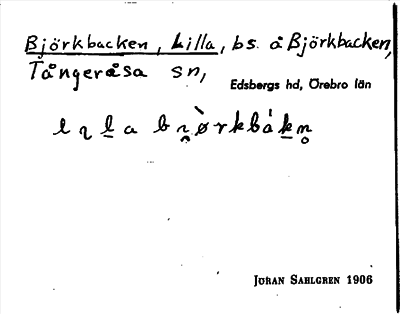 Björkbacken, Lilla, bs. å Björkbacken,
Tångeråsa sn,
Edsbergs hd, Örebro län
JÖRAN SAHLGREN 1906